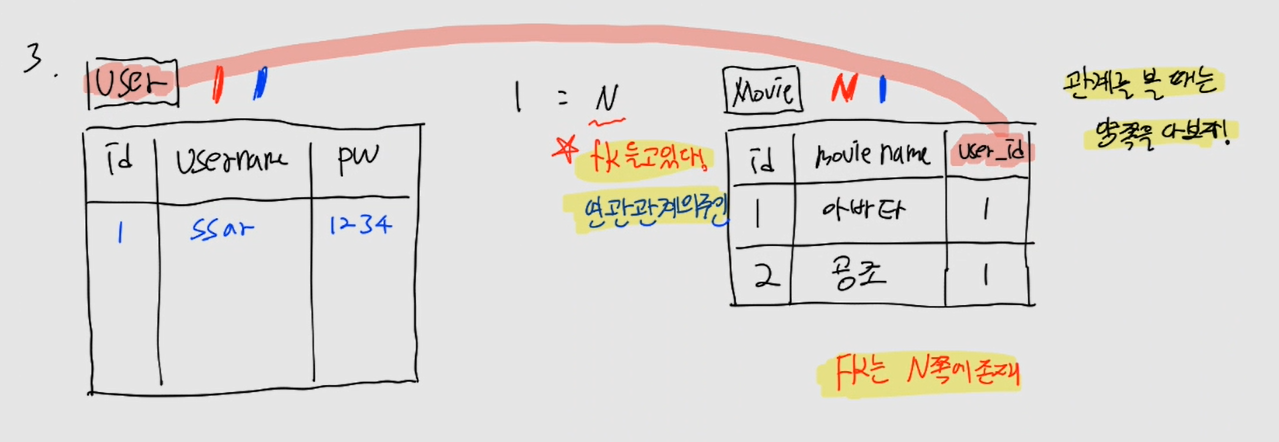 3.
User 1 1
id username pw
1 ssar 1234
1 = N
★ fk 들고있다!
연관관계의주인
Movie N 1
id movie name user_id
1 아바타 1
2 공조 1
FK는 N쪽에 존재
관계를 볼 때는
양쪽을 다보자!